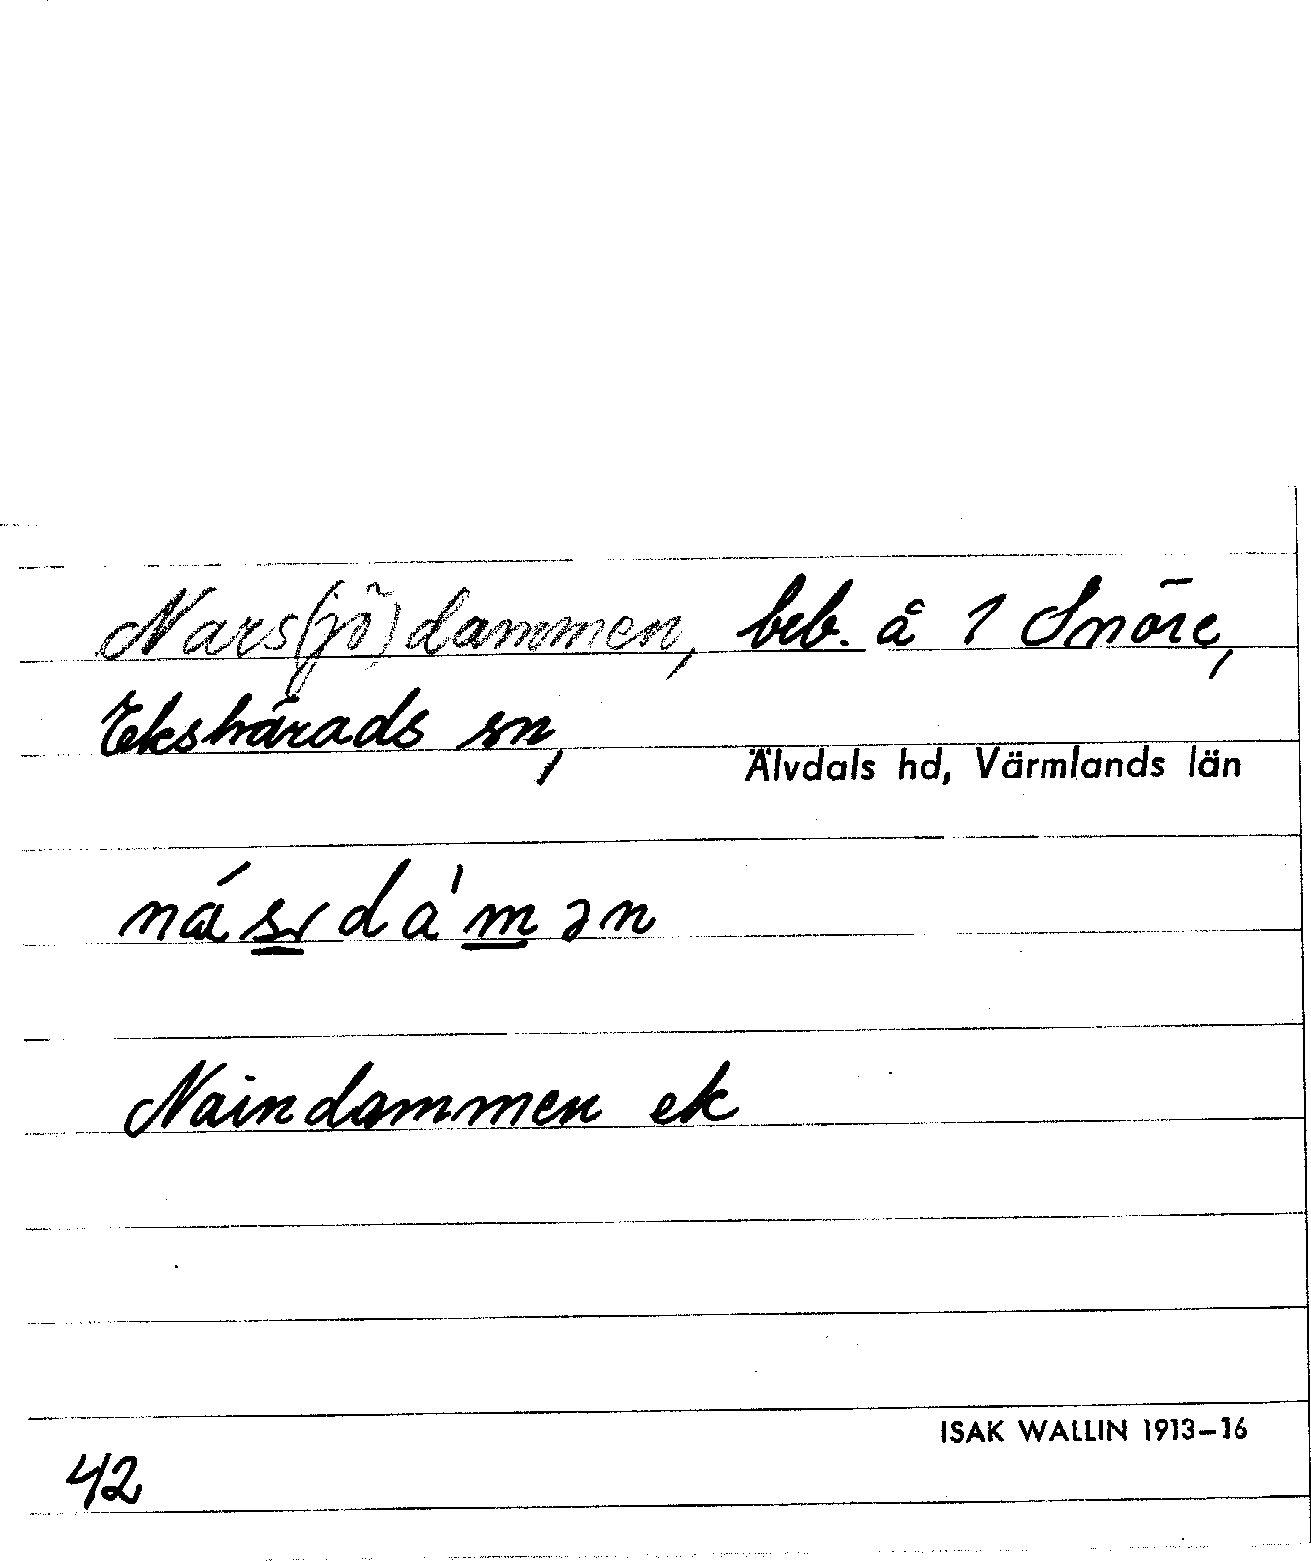 Nars(jö)dammen, beb. å 1 Snöre,
Ekshärads sn,
Älvdals hd, Värmlands län
Naindammen ek
ISAK WALLIN 1913–16
42